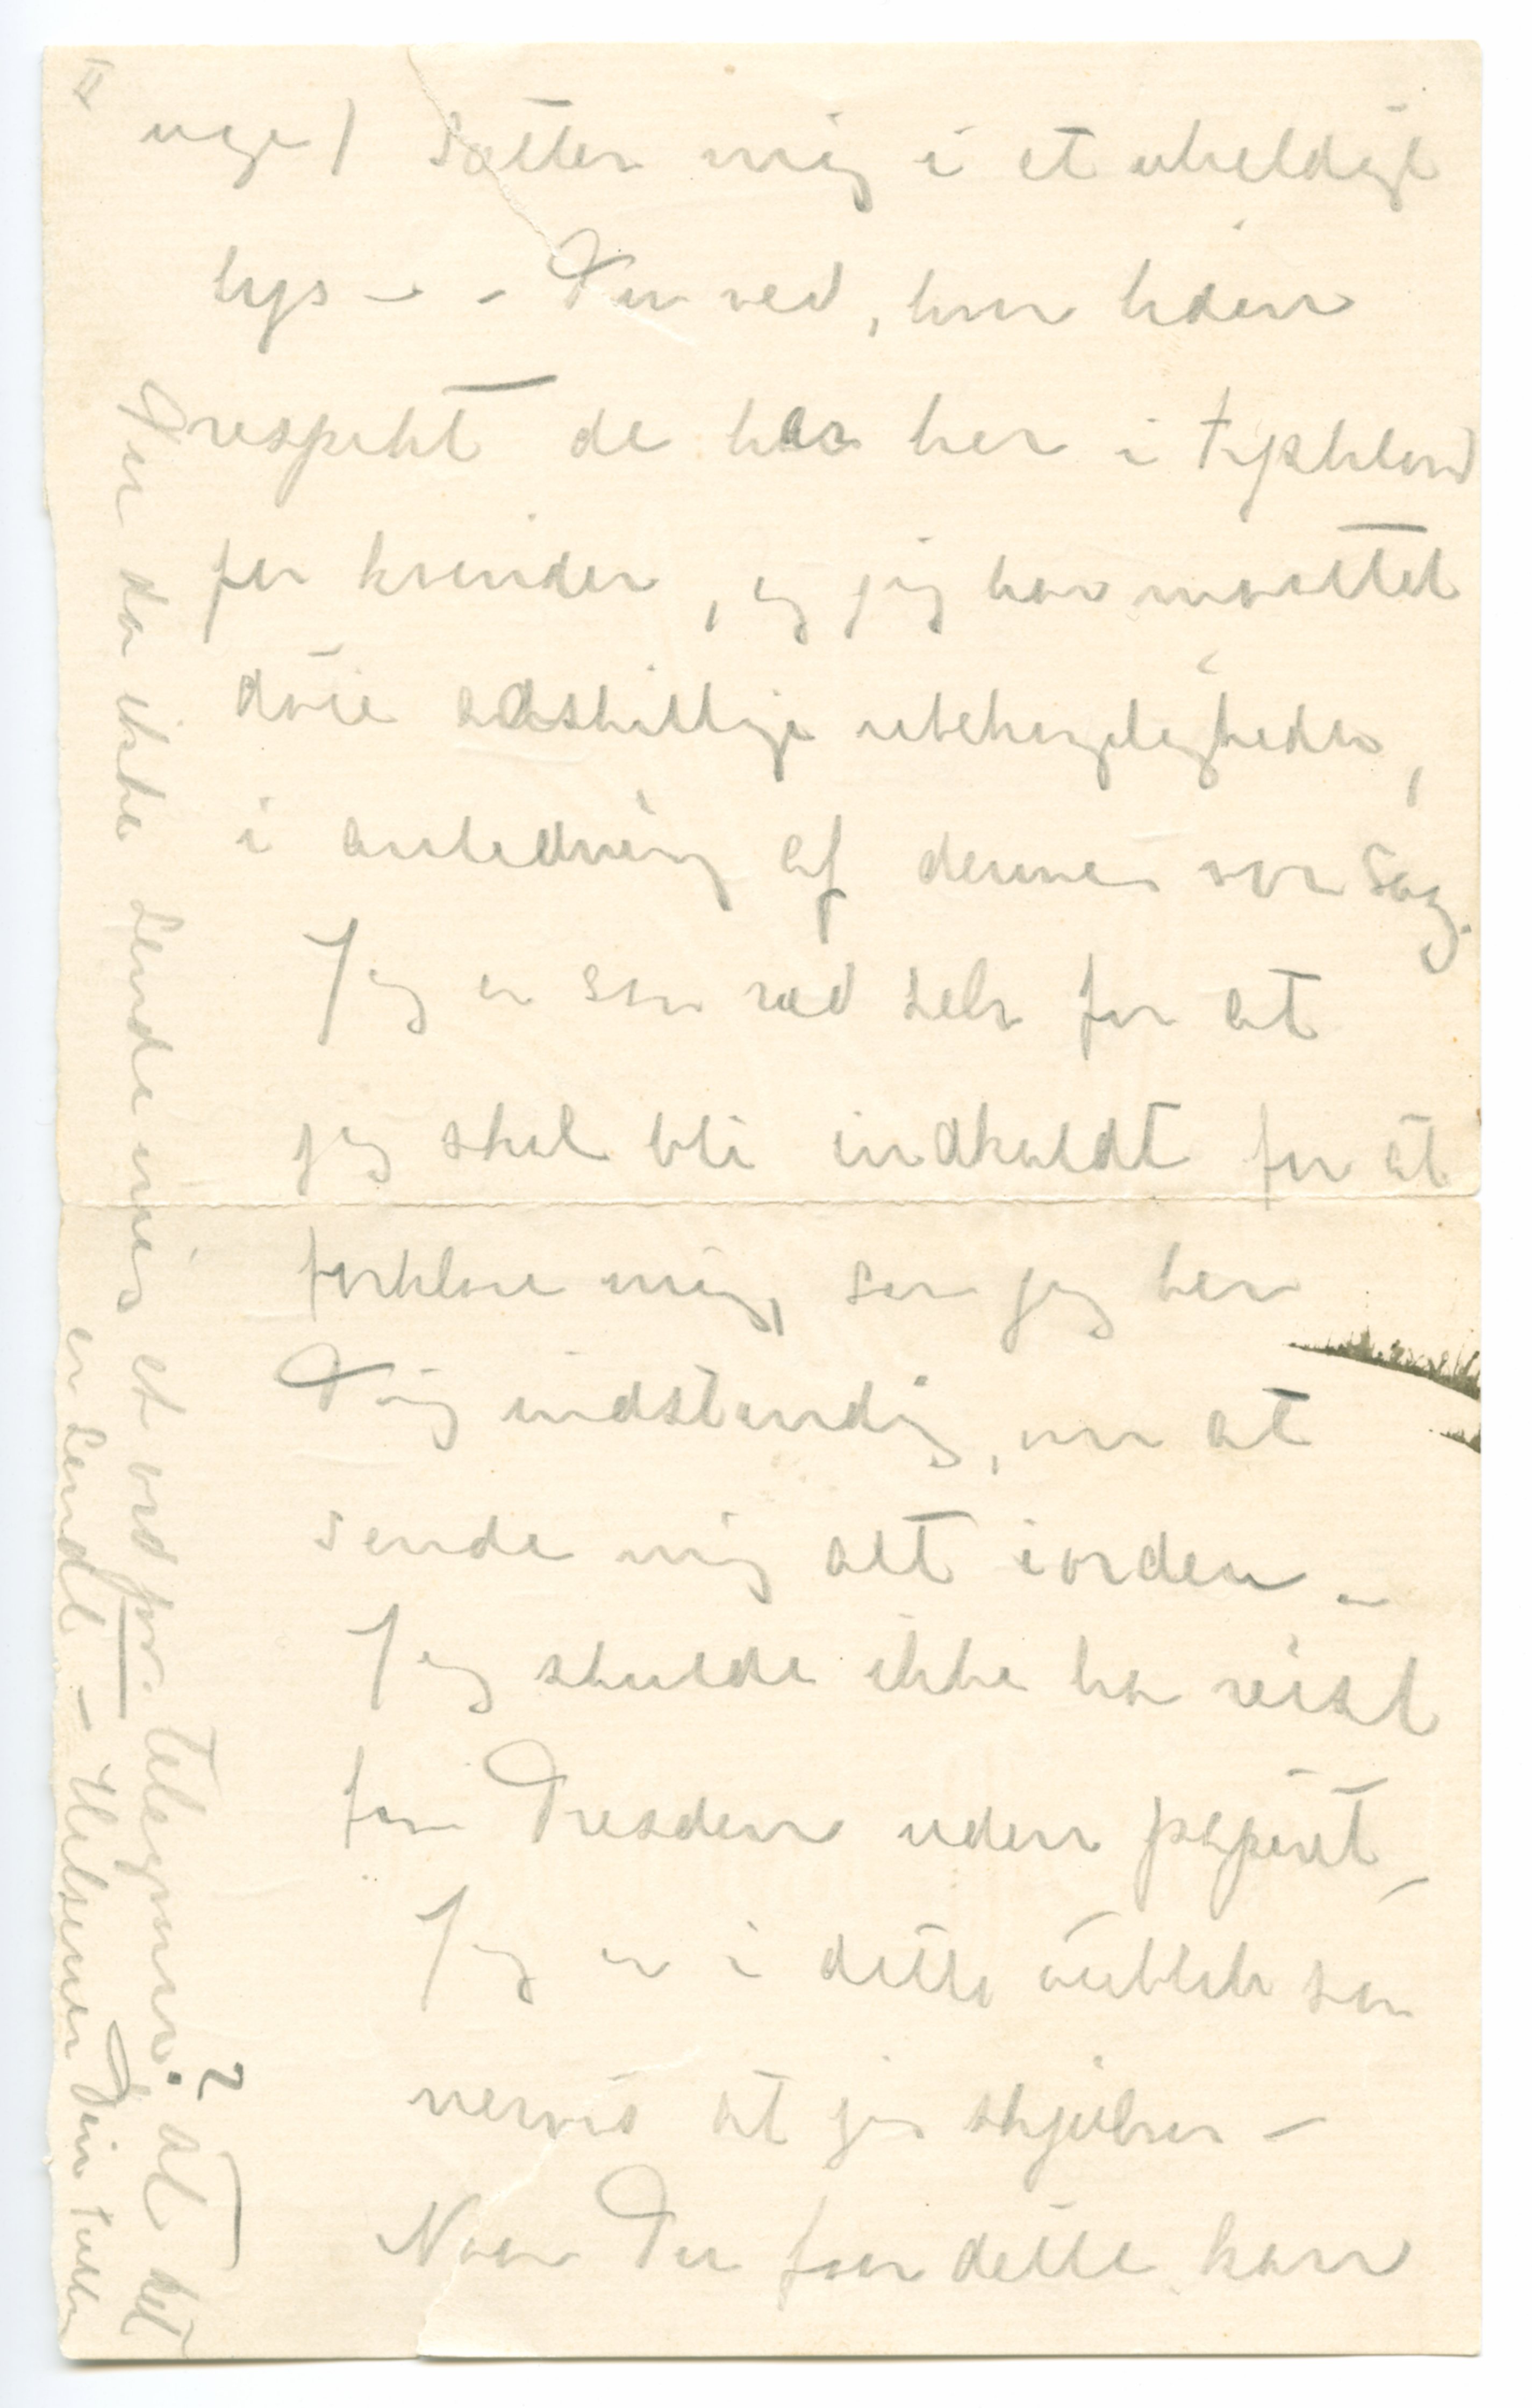 II
uge) sætter mig i et uheldigt
lys – – Du ved, hvor liden
respekt de har her i tyskland
for kvinder, og jeg har maattet
döie adskillige ubehageligheder,
i anledning af denne vor sag.
Jeg er saa ræd selv for at
jeg skal bli indkaldt for at
forklare mig, saa jeg ber
Dig indstændig, om at
sende mig alt iorden –
Jeg skulde ikke ha reist
fra Dresden uden papiret,
Jeg er i dette öieblik saa
nervös at jeg skjælver –
Naar Du faar dette kan
Du da ikke sende mig et ord pr. telegram? at det
er sendt – Hilsener Din Tulla